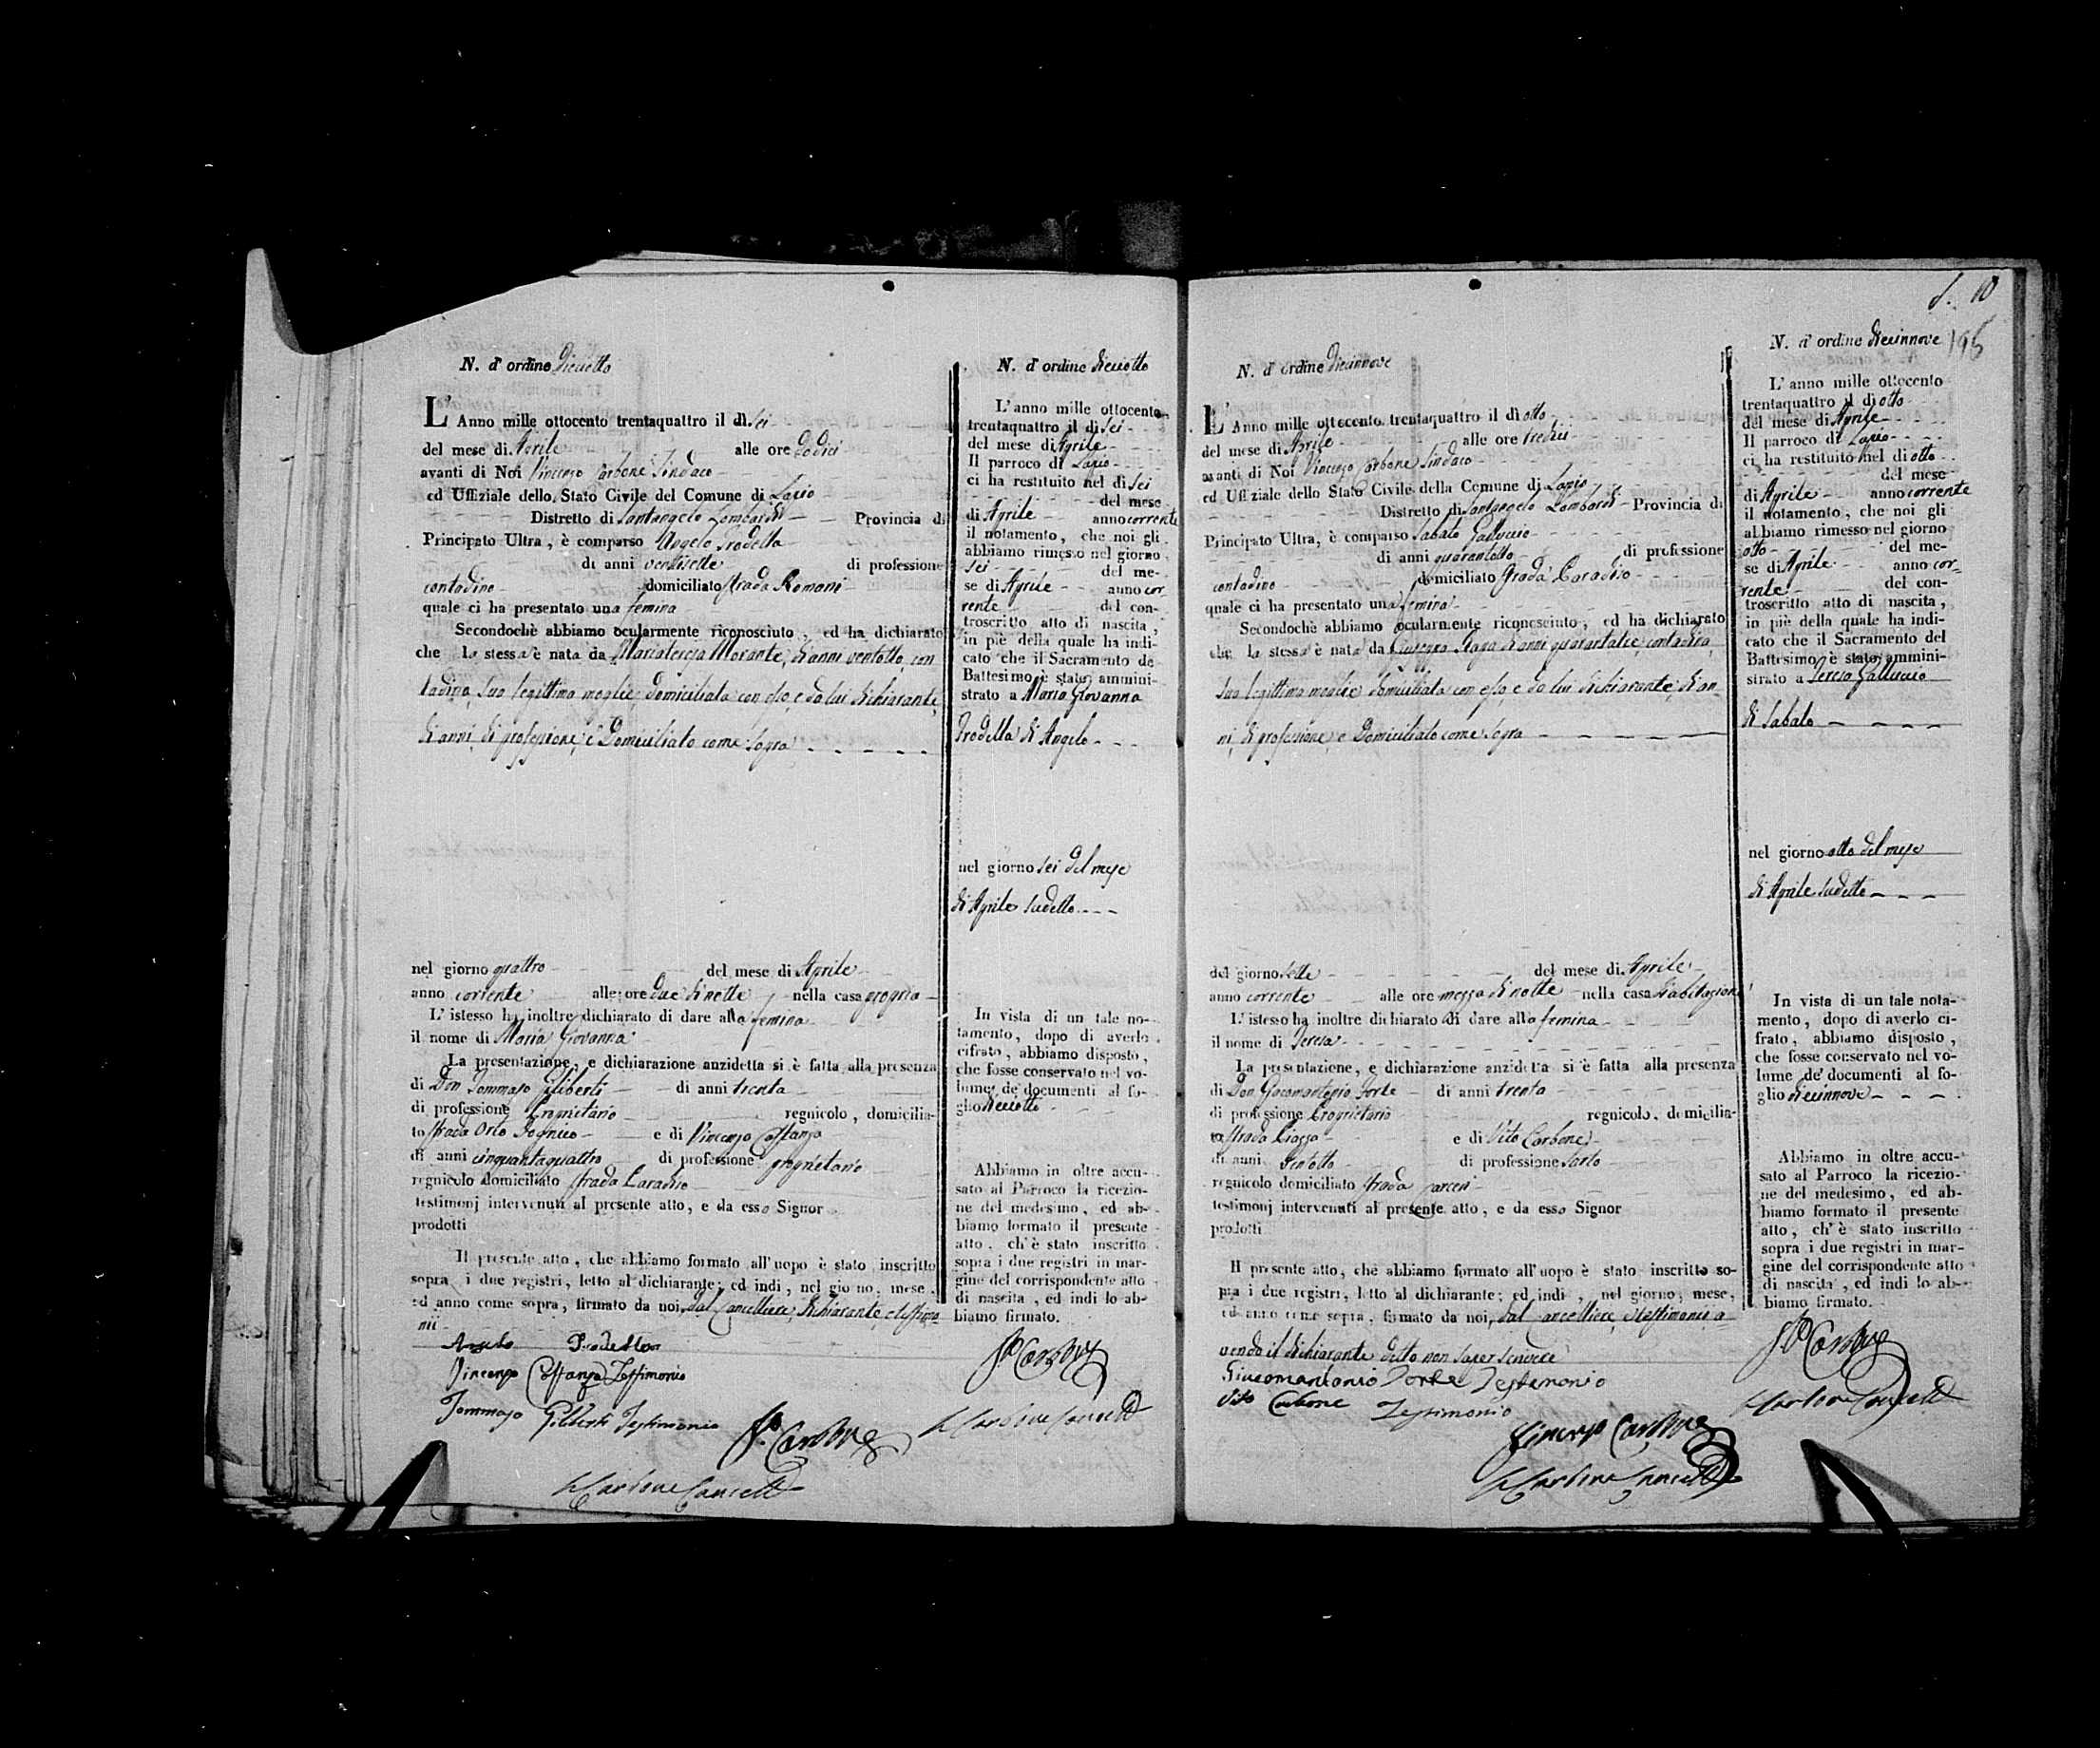 N. d'ordine Dieciotto
L'Anno mille ottocento trentaquattro il dì sei
del mese di Aprile alle ore dodici
avanti di Noi Vincenzo Carbone Sindaco
ed Uffiziale dello Stato Civile del Comune di Lapio
Distretto di Santangelo Lombardi Provincia di
Principato Ultra, è comparso Angelo
di anni ventisette di professione
contadino domiciliato strada Romani
quale ci ha presentato una femina
Secondochè abbiamo ocularmente riconosciuto, ed ha dichiarato
che la stessa è nata da Mariateresa Morante, di anni ventotto, con
tadina, sua legittima moglie, domiciliata con esso, e da lui dichiarante,
di anni, di professione, e Domiciliato come sopra
nel giorno quattro del mese di Aprile
anno corrente alle ore due di notte nella casa propria
L'istesso ha inoltre dichiarato di dare alla femina
il nome di Maria Giovanna
La presentazione, e dichiarazione anzidetta si è fatta alla presenza
di Don Tommaso Giliberti di anni trenta
di professione Proprietario regnicolo, domicilia-
to strada Orto e di Vincenzo Costanza
di anni cinquantaquattro di professione proprietario
regnicolo domiciliato strada Paradiso
testimonj intervenuti al presente atto, e da esso Signor
prodotti
Il presente atto, che abbiamo formato all'uopo è stato inscritto
sopra i due registri, letto al dichiarante; ed indi, nel giorno, mese,
ed anno come sopra, firmato da noi, dal Cancelliere, dichiarante, e testimo
nii
Angelo
Vincenzo Costanza Testimonio
Tommaso Giliberti Testimonio
Carbone
Carbone Cancell
N. d'ordine Dieciotto
L'anno mille ottocento
trentaquattro il dì sei
del mese di Aprile
Il parroco di Lapio
ci ha restituito nel dì sei
del mese
di Aprile anno corrente
il notamento, che noi gli
abbiamo rimesso nel giorno
sei del me-
se di Aprile anno cor
rente del con-
troscritto atto di nascita,
in piè della quale ha indi-
cato che il Sacramento de
Battesimo è stato ammini-
strato a Maria Giovanna
di Angelo
nel giorno sei del mese
di Aprile sudetto
In vista di un tale no-
tamento, dopo di averlo
cifrato, abbiamo disposto,
che fosse conservato nel vo-
lume de' documenti al fo-
glio dieciotto
Abbiamo in oltre accu-
sato al Parroco la ricezio-
ne del medesimo, ed ab-
biamo formato il presente
atto, ch'è stato inscritto
sopra i due registri in mar-
gine del corrispondente atto
di nascita, ed indi lo ab-
biamo firmato.
Carbone
Carbone Cancell
10
N. d'ordine Diecinnove
L'Anno mille ottocento trentaquattro il dì otto
del mese di Aprile alle ore tredici
avanti di Noi Vincenzo Carbone Sindaco
ed Uffiziale dello Stato Civile della Comune di Lapio
Distretto di Santangelo Lombardi Provincia di
Principato Ultra, è comparso Sabato Galluccio
di anni quarantotto di professione
contadino domiciliato strada Paradiso
quale ci ha presentato una femina
Secondochè abbiamo ocularmente riconosciuto, ed ha dichiarato
che la stessa è nata da di anni contadina,
sua legittima moglie domiciliata con esso, e da lui dichiarante, di an
ni, di professione, e Domiciliato come sopra
del giorno sette del mese di Aprile
anno corrente alle ore mezza di notte nella casa d'abitazione
L'istesso ha inoltre dichiarato di dare alla femina
il nome di Teresa
La presentazione, e dichiarazione anzidetta si è fatta alla presenza
di Don Giacomantonio Forte di anni trenta
di professione Proprietario regnicolo, domicilia-
to strada Piazza e di Vito Carbone
di anni ventotto di professione sarto
regnicolo domiciliato strada Carceri
testimonj intervenuti al presente atto, e da esso Signor
prodotti
Il presente atto, che abbiamo formato all'uopo è stato inscritto so-
pra i due registri, letto al dichiarante; ed indi, nel giorno, mese,
ed anno come sopra, firmato da noi, dal Cancelliere, e testimonii a
vendo il dichiarante detto non saper scrivere
Giacomantonio Forte Testimonio
Vito Carbone Testimonio
Vincenzo Carbone
Carbone Cancell
N. d'ordine diecinnove
196
L'anno mille ottocento
trentaquattro il dì otto
del mese di Aprile
Il parroco di Lapio
ci ha restituito nel dì otto
del mese
di Aprile anno corrente
il notamento, che noi gli
abbiamo rimesso nel giorno
otto del me-
se di Aprile anno cor-
rente del con-
troscritto atto di nascita,
in piè della quale ha indi-
cato che il Sacramento del
Battesimo è stato ammini-
strato a Teresa Galluccio
di Sabato
nel giorno otto del mese
di Aprile sudetto
In vista di un tale nota-
mento, dopo di averlo ci-
frato, abbiamo disposto,
che fosse conservato nel vo-
lume de' documenti al fo-
glio diecinnove
Abbiamo in oltre accu-
sato al Parroco la ricezio-
ne del medesimo, ed ab-
biamo formato il presente
atto, ch'è stato inscritto
sopra i due registri in mar-
gine del corrispondente atto
di nascita, ed indi lo ab-
biamo firmato.
Carbone
Carbone Cancell